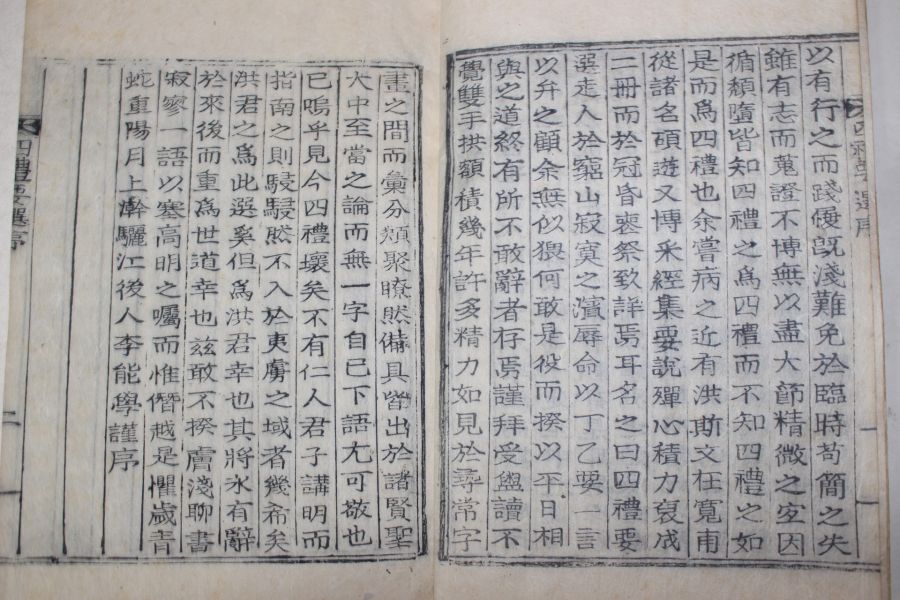 四禮要選序
以有行之而踐履旣淺難免於臨時苟簡之失
雖有志而蒐證不博無以盡大節精微之宜因
循頹墮皆知四禮之爲四禮而不知四禮之如
是而爲四禮也余嘗病之近有洪斯文在寬甫
從諸名碩遊又博采經集要說殫心積力裒成
二冊而於冠昏喪祭致詳焉耳名之曰四禮要
選走人於窮山寂寞之濱辱命以丁乙要一言
以弁之顧余無似猥何敢是役而揆以平日相
與之道終有所不敢辭者存焉謹拜受盥讀不
覺雙手拱額積幾年許多精力如見於尋常字
畫之間而彙分類聚瞭然備具皆出於諸賢聖
大中至當之論而無一字自已下語尤可敬也
已嗚乎見今四禮壞矣不有仁人君子講明而
指南之則駸駸然不入於夷虜之域者幾希矣
洪君之爲此選奚但爲洪君幸也其將永有辭
於來後而重爲世道幸也玆敢不揆膚淺聊書
寂寥一語以塞高明之囑而惟僭越是懼歲靑
蛇重陽月上澣驪江後人李能學謹序
四禮要選序
二